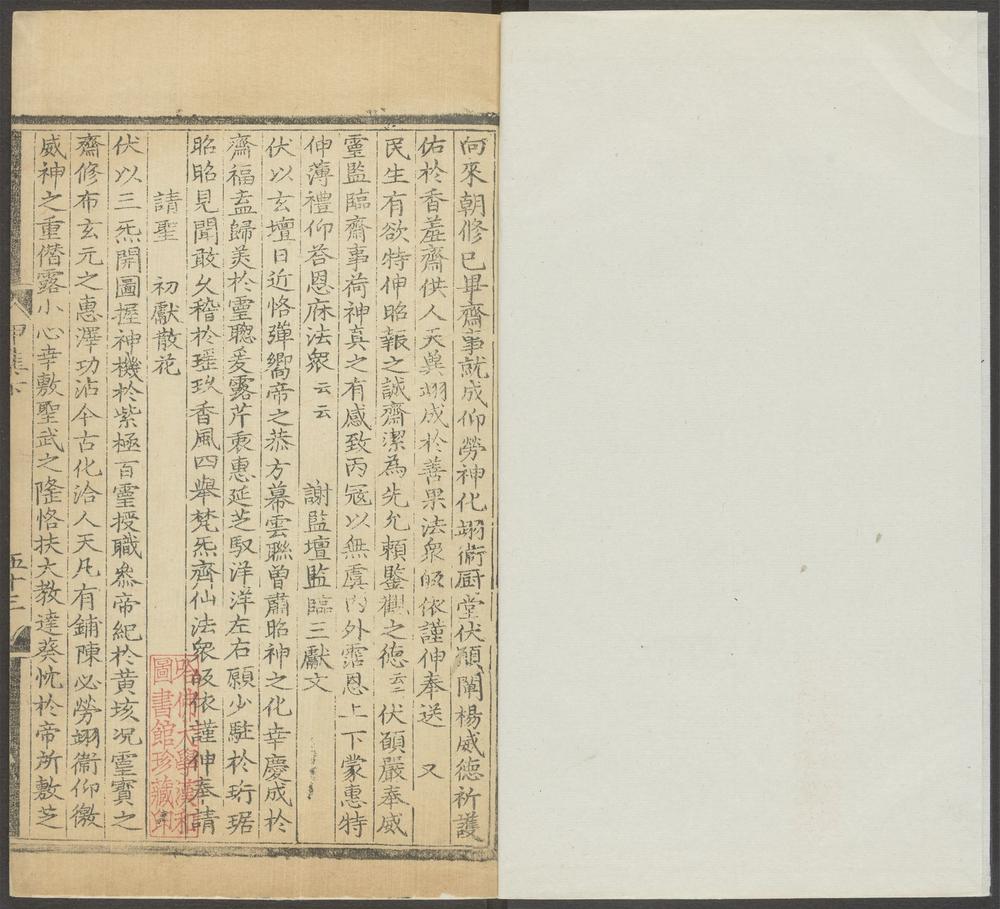 向來朝修已畢齋事就成仰勞神化翊衛厨堂伏願闡楊威德祈護
佑於香羞齋供人天兾翊成於善果法衆皈依謹伸奉送　又
民生有欲特伸昭報之誠齋潔為先允賴鑒觀之德云云伏願嚴奉威
霊監臨齋事荷神真之有感致丙冦以無虞内外霑恩上下蒙惠特
伸薄禮仰荅恩庥法衆云云　謝監壇監臨三獻文
伏以玄壇日近恪彈嚮帝之恭方幕雲聯曽肅昭神之化幸慶成於
齋福盍歸美於霊聦爰露芹衷惠延芝馭洋洋左右願少駐於珩琚
昭昭見聞敢久稽於瑶玖香風四舉梵炁齊仙法衆皈依謹伸奉請
請聖　初獻散花
伏以三炁開圖握神機於紫極百霊授職叅帝紀於黄垓况霊寳之
齋修布玄元之惠澤功沾今古化洽人天凡有鋪陳必勞翊衞仰徼
威神之重僭露小心幸敷聖武之隆恪扶大教達葵忱於帝所敷芝
甲集下
五十三
哈佛大學漢和
圖書館珍藏印